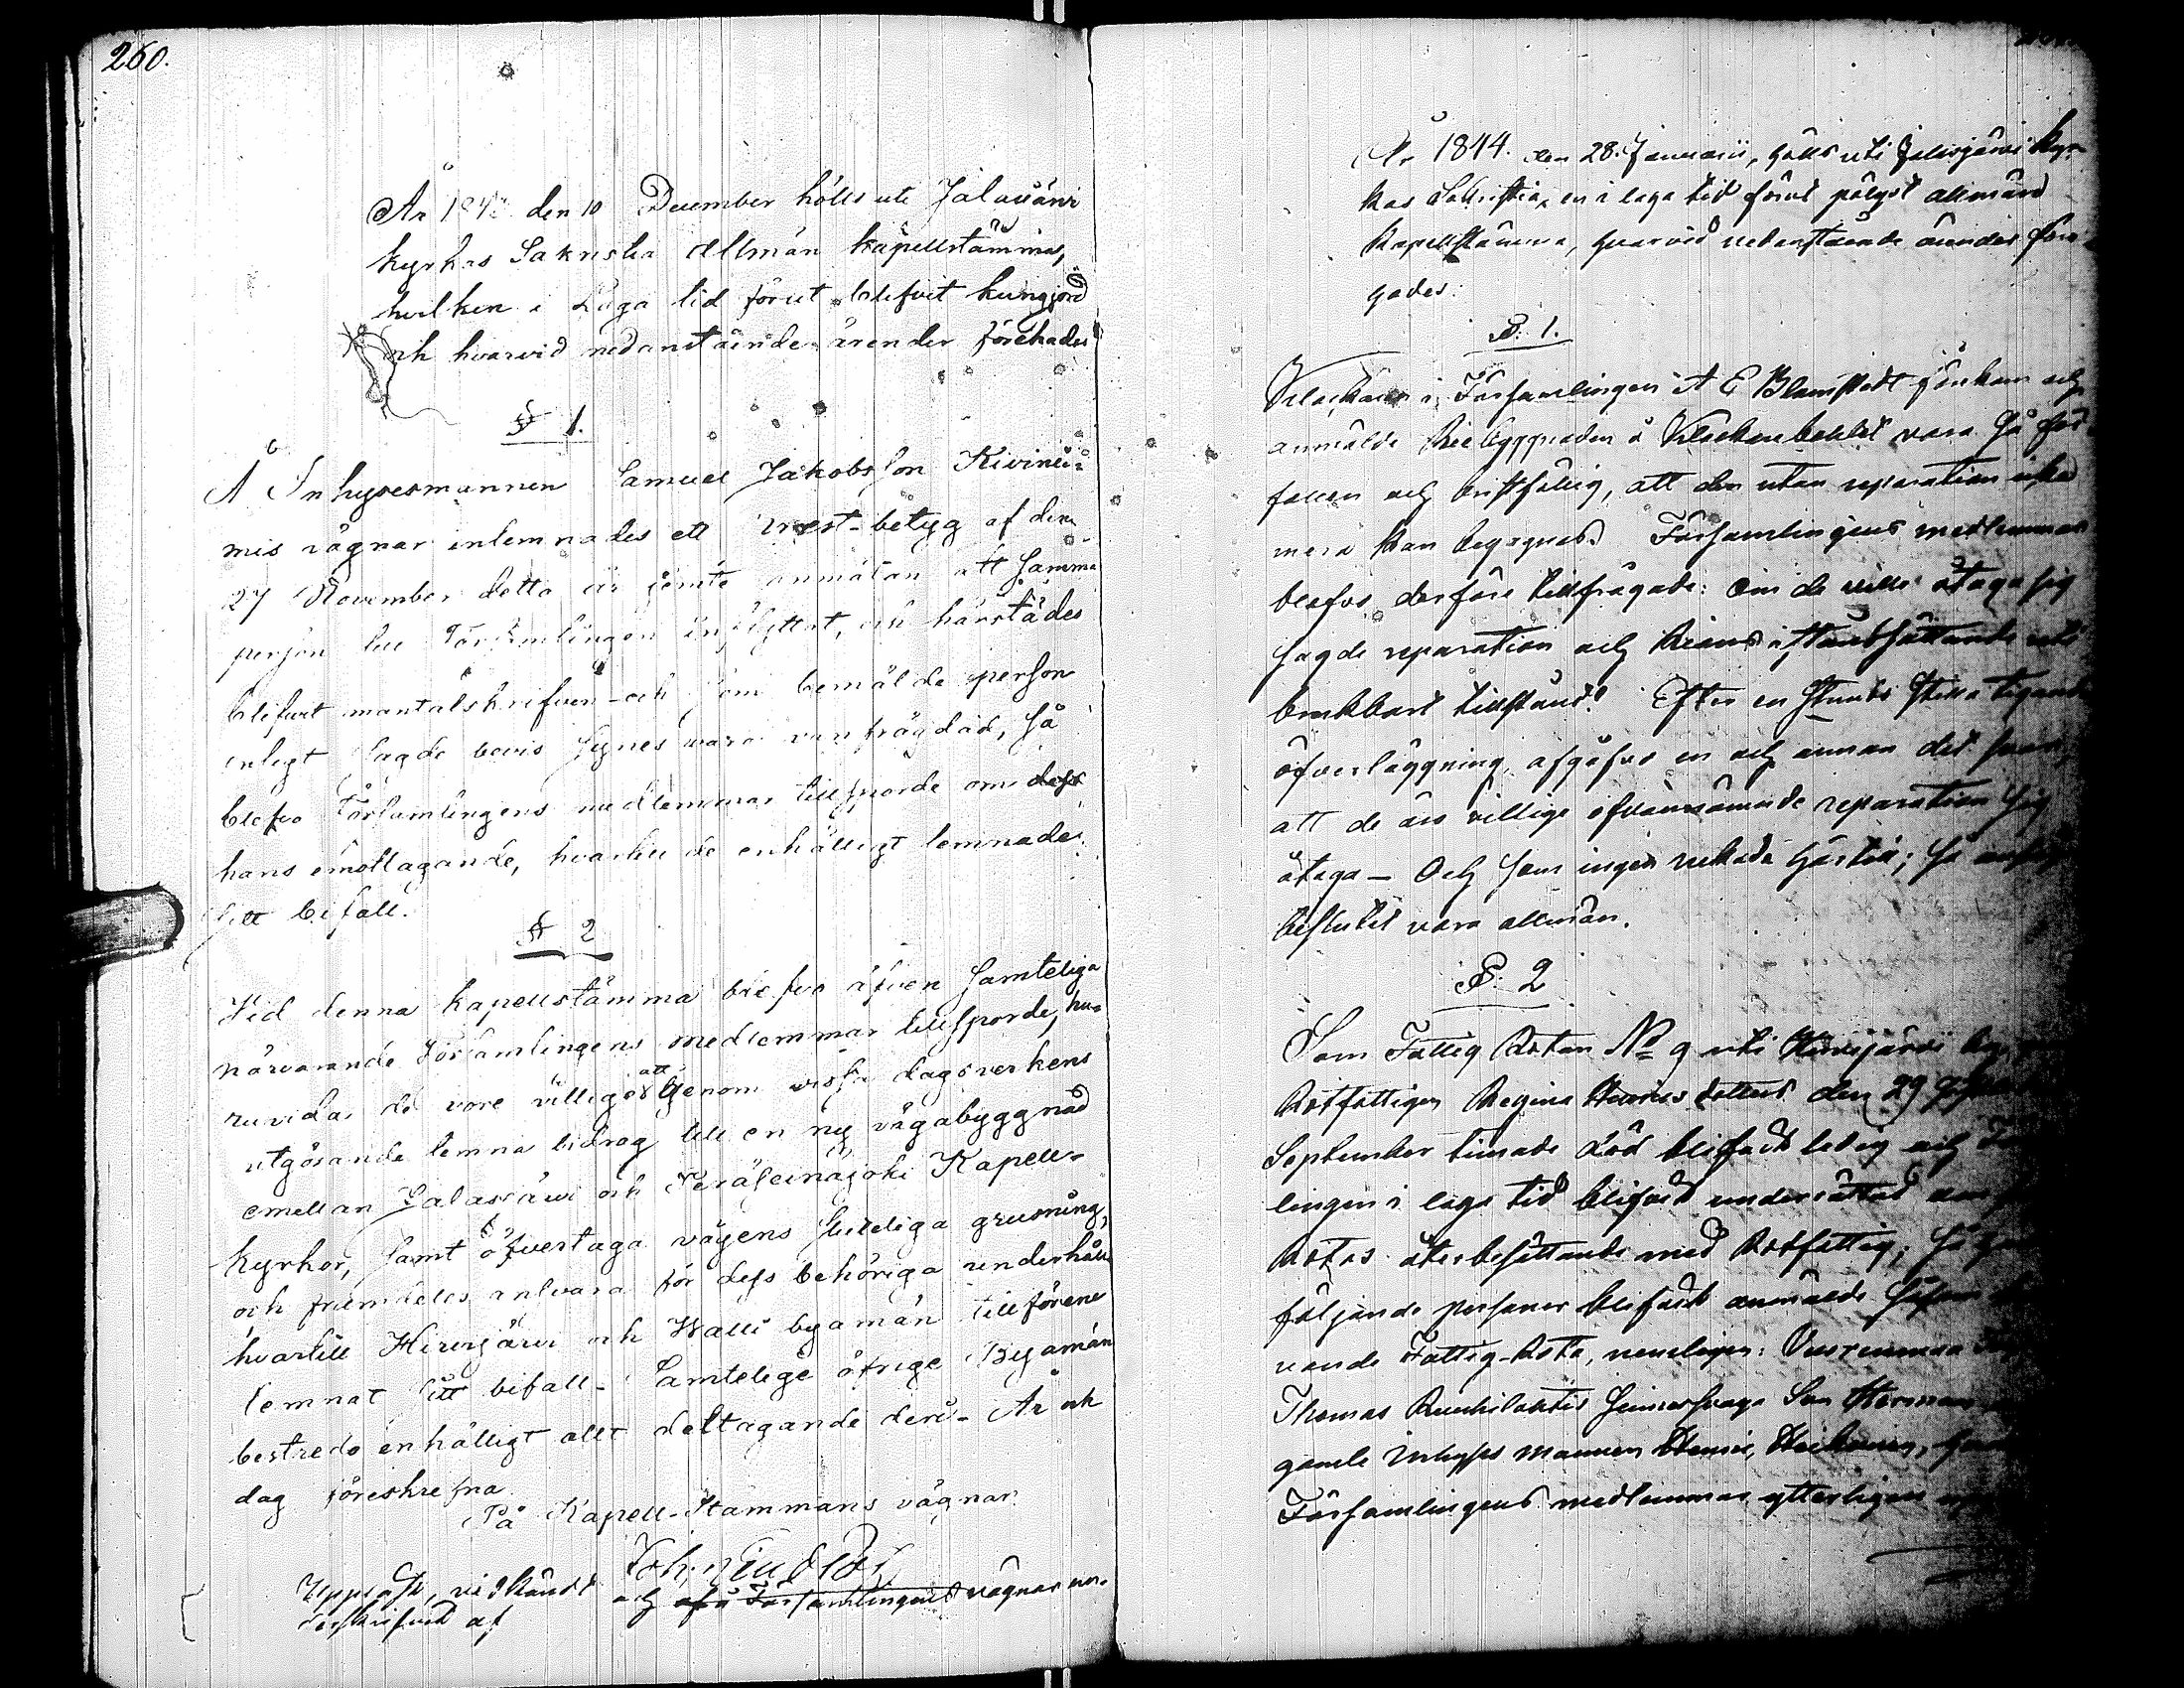 260.
År 1843 den 10 December hölls uti Jalasjärvi
kyrkas Sakristia Allmän kapellstämma,
hvilken i Laga tid förut blifvit kungjord
och hvarvid nedanstående ärender förehades
§ 1.
Å Inhysesmannen Samuel Jakobsson Kivinie-
mis vägnar inlemnades ett prest-betyg af den
27 November detta år jemte anmälan att samma
person till Församlingen inflyttat, och härstädes
blifvit mantalskrifven och som bemälde person
enligt sagde bevis synes vara vanfrägdad, så
blefvo Församlingens medlemmar tillsporde om dess
hans emottagande, hvartill de enhälligt lemnade
sitt bifall.
§ 2
Vid denna kapellstämma blefvo äfven samteliga
närvarande Församlingens medlemmar tillsporde, hu-
ruvida de vore villige att genom vissa dagsverkens
utgörande lemna bidrag till en ny vägabyggnad
emellan Jalasjärvi och Peräseinäjoki Kapell-
kyrkor, samt öfvertaga vägens slutliga grusning,
och framdeles ansvara för dess behöriga underhåll
hvartill Hirvijärvi och Walli byamän tillförene
lemnat sitt bifall. Samtelige öfrige Byamän
bestredo enhälligt allt deltagande deri. År och
dag föreskrefna.
På Kapell-Stämmans vägnar.
Uppläst, vidkändt och å Församlingens vägnar un-
derskrifvet af
År 1844. den 28. Januarii, hölls uti Jalasjärvi Kyr-
kas Sakristia, en i laga tid förut pålyst allmän
Kapellstämma, hvarvid nedanstående ärender före-
hades:
§. 1.
Klockaren i Församlingen A E Blomstedt framkom och
anmälde Riebyggnaden å Klockarebolet vara så för-
fallen och bristfällig, att den utan reparation icke
mera kan begagnas. Församlingens medlemmar
blefvo derföre tillfrågade: om de ville åtaga sig
sagde reparation och Rians iståndsättande uti
brukbart tillstånd? Efter en stunds stilla tigande
öfverläggning, afgåfvo en och annan det svar,
att de äro villige ofvannämnde reparation sig
åtaga — Och som ingen nekade härtill; så ansågs
beslutet vara allmän.
§. 2
Som Fattig Rotan No 9 uti Hirvijärvi by,
Rotfattigen Regina Henriksdotters den 29
September timade död blifvit ledig och
lingen i laga tid blifvit underrättad om
Rotas återbesättande med Rotfattig; så
följande personer blifvit anmälde såsom
rande Fattig-Rota, nemligen:
Thomas sinnessvaga Son Herman
gamle Inhyses mannen Henric
Församlingens medlemmar ytterligare